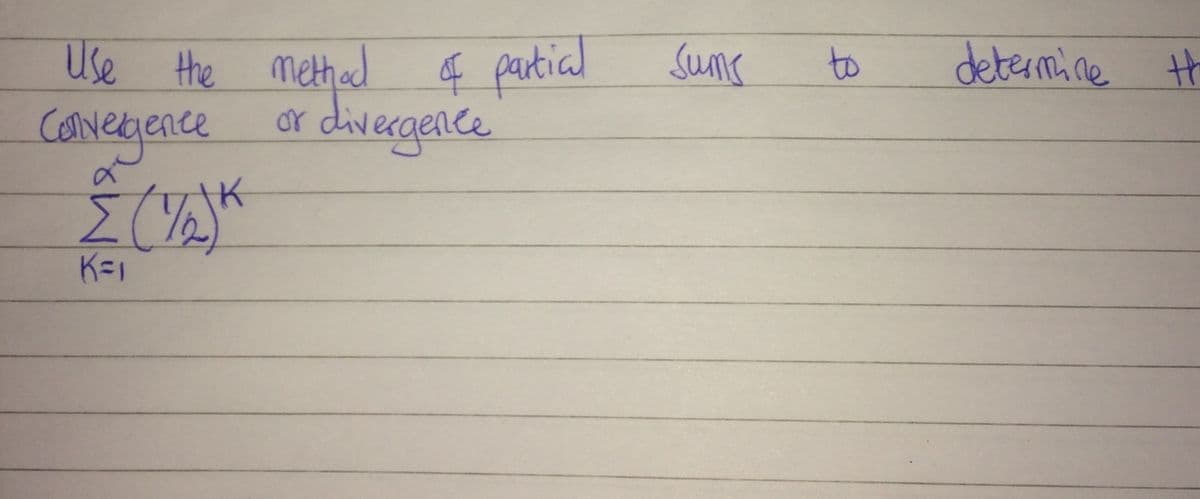 Use the method of partial sums to determine th
Convergence or divergence
∝
Σ (1/2)^K
K=1